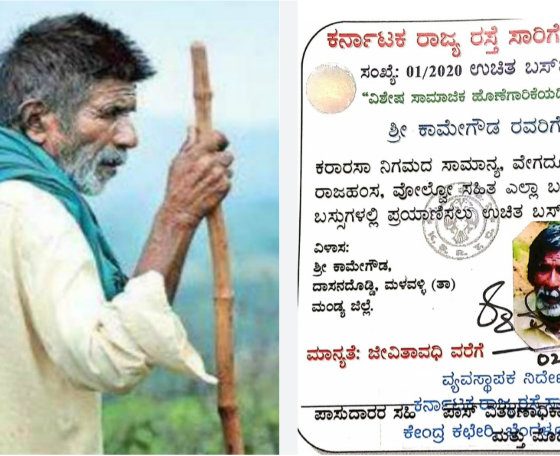 ಕರ್ನಾಟಕ ರಾಜ್ಯ ರಸ್ತೆ ಸಾರಿಗೆ
ಸಂಖ್ಯೆ: 01/2020 ಉಚಿತ ಬಸ್
"ವಿಶೇಷ ಸಾಮಾಜಿಕ ಹೊಣೆಗಾರಿಕೆಯಡಿ
ಶ್ರೀ ಕಾಮೇಗೌಡ ರವರಿಗೆ
ಕರಾರಸಾ ನಿಗಮದ ಸಾಮಾನ್ಯ, ವೇಗದೂ
ರಾಜಹಂಸ, ವೋಲ್ವೋ ಸಹಿತ ಎಲ್ಲಾ ಬ
ಬಸ್ಸುಗಳಲ್ಲಿ ಪ್ರಯಾಣಿಸಲು ಉಚಿತ ಬಸ್
ವಿಳಾಸ:
ಶ್ರೀ ಕಾಮೇಗೌಡ,
ದಾಸನದೊಡ್ಡಿ, ಮಳವಳ್ಳಿ (ತಾ)
ಮಂಡ್ಯ ಜಿಲ್ಲೆ.
ಮಾನ್ಯತೆ: ಜೀವಿತಾವಧಿ ವರೆಗೆ
ವ್ಯವಸ್ಥಾಪಕ ನಿರ್ದೇ
ಪಾಸುದಾರರ ಸಹಿ ಪಾಸ್ ವಿತರಣಾಧಿಕಾ
ಕರ್ನಾಟಕ ರಾಜ್ಯ ರಸ್ತೆ
ಕೇಂದ್ರ ಕಛೇರಿ, ಬೆಂಗಳೂ
ಮತ್ತು ಮೊ